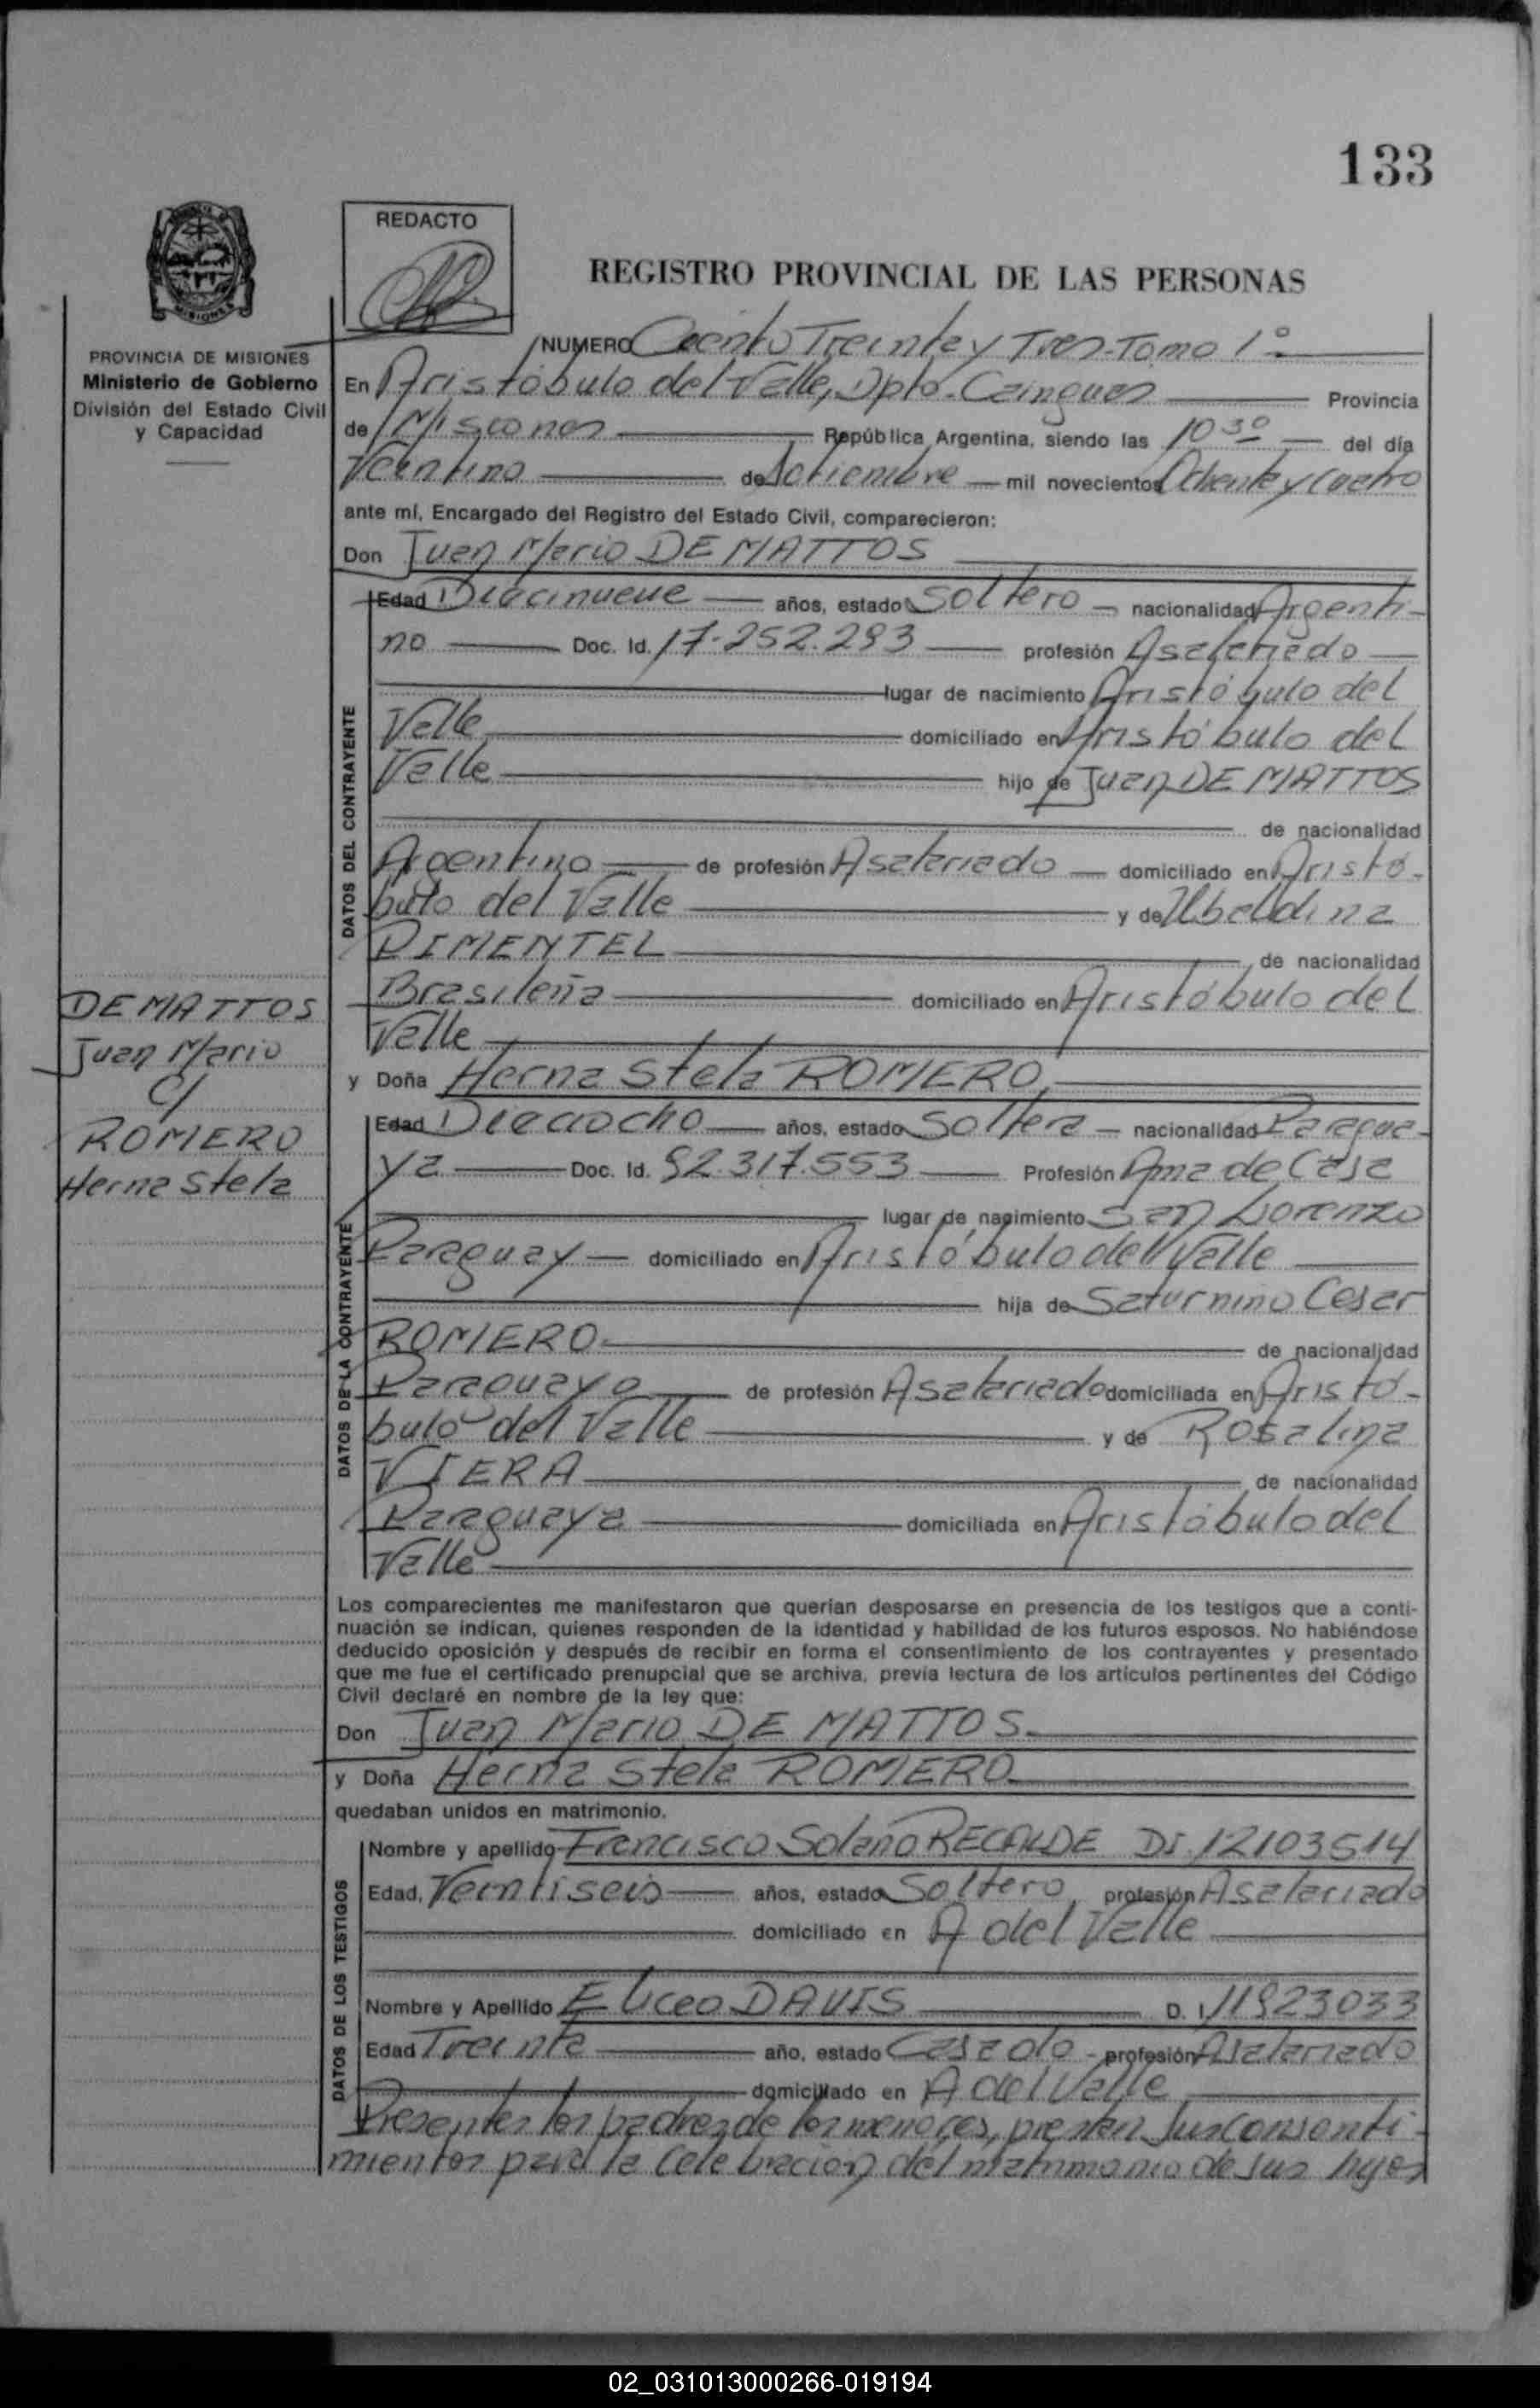 133
REDACTO
REGISTRO PROVINCIAL DE LAS PERSONAS
MISIONES
PROVINCIA DE MISIONES
Ministerio de Gobierno
División del Estado Civil
y Capacidad
DE MATTOS
Juan Mario
C/
ROMERO
Herna Stela
NUMERO Ciento Treinta y Tres-Tomo 1º
En Aristóbulo del Valle, Dpto. Cainguas Provincia
de Misiones República Argentina, siendo las 10 30 del día
Veintiuno de Setiembre mil novecientos Ochenta y Cuatro
ante mí, Encargado del Registro del Estado Civil, comparecieron:
Don Juan Mario DE MATTOS
DATOS DEL CONTRAYENTE
Edad Diecinueve años, estado Soltero nacionalidad Argenti-
no Doc. Id. 17.252.293 profesión Asalariado
lugar de nacimiento Aristóbulo del
Valle domiciliado en Aristóbulo del
Valle hijo de Juan DE MATTOS
de nacionalidad
Argentino de profesión Asalariado domiciliado en Aristó-
bulo del Valle y de Ubaldina
PIMENTEL de nacionalidad
Brasileña domiciliado en Aristóbulo del
Valle
y Doña Herna Stela ROMERO
DATOS DE LA CONTRAYENTE
Edad Dieciocho años, estado Soltera nacionalidad Paragua-
ya Doc. Id. 92.317.553 Profesión Ama de Casa
lugar de nacimiento San Lorenzo
Paraguay domiciliado en Aristóbulo del Valle
hija de Saturnino Cesar
ROMERO de nacionalidad
Paraguayo de profesión Asalariado domiciliada en Aristó-
bulo del Valle y de Rosalina
VIERA de nacionalidad
Paraguaya domiciliada en Aristóbulo del
Valle
Los comparecientes me manifestaron que querían desposarse en presencia de los testigos que a conti-
nuación se indican, quienes responden de la identidad y habilidad de los futuros esposos. No habiéndose
deducido oposición y después de recibir en forma el consentimiento de los contrayentes y presentado
que me fue el certificado prenupcial que se archiva, previa lectura de los artículos pertinentes del Código
Civil declaré en nombre de la ley que:
Don Juan Mario DE MATTOS
y Doña Herna Stela ROMERO
quedaban unidos en matrimonio.
DATOS DE LOS TESTIGOS
Nombre y apellido Francisco Solano RECALDE DI 12103514
Edad, Veintiseis años, estado Soltero profesión Asalariado
domiciliado en A del Valle
Nombre y Apellido Eliceo DAVIS D. I. 11923033
Edad Treinta año, estado Casado profesión Asalariado
domiciliado en A del Valle
Presentes los padres de los menores, prestan sus consenti-
mientos para la celebración del matrimonio de sus hijos
02_031013000266-019194